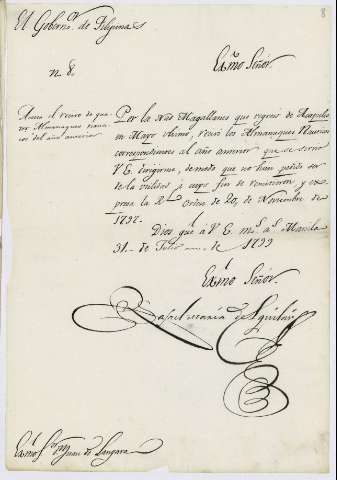 8
El Gobern.or de Filipinas
Ex.mo Señor
n. 8.
Avisa el recivo de qua-
tro Almanaques nauti-
cos del año anterior
Por la Nao Magallanes que regresó de Acapulco
en Mayo ultimo, recivi los Almanaques Nauticos
correspondientes al año anterior que se sirvió
V E dirigirme, de modo que no han podido ser
de la utilidad a cuyo fin se remitieron, y ex-
presa la R.l Orden de 20, de Noviembre de
1797.
Dios gue. á V. E. m.s a.s Manila
31. de Julio de 1799
Ex.mo Señor
Rafael Maria de Aguilar
Ex.mo S.or D.n Juan de Langara